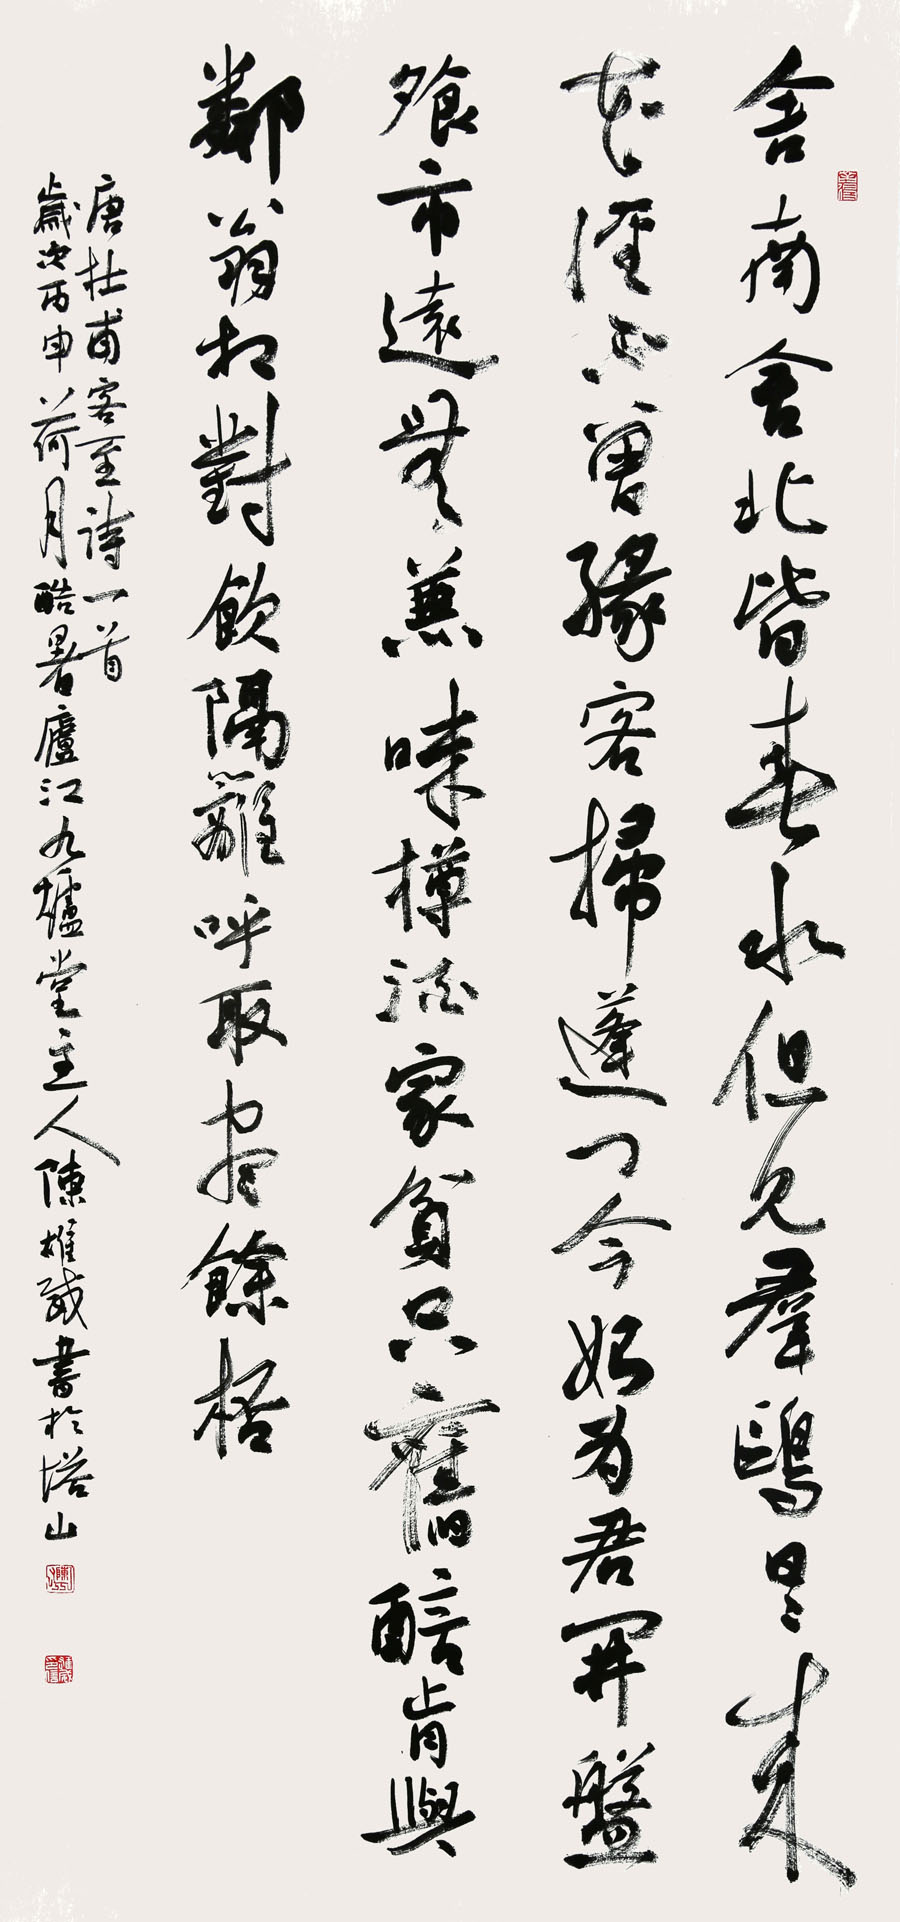 舍南舍北皆春水但見羣鷗日〻來
花徑不曾緣客掃蓬門今始為君開盤
飧市遠無兼味樽酒家貧只舊醅肯與
鄰翁相對飲隔籬呼取盡餘桮
唐杜甫客至詩一首
歲次丙申荷月酷暑廬江九壚堂主人陳雄威書於塔山